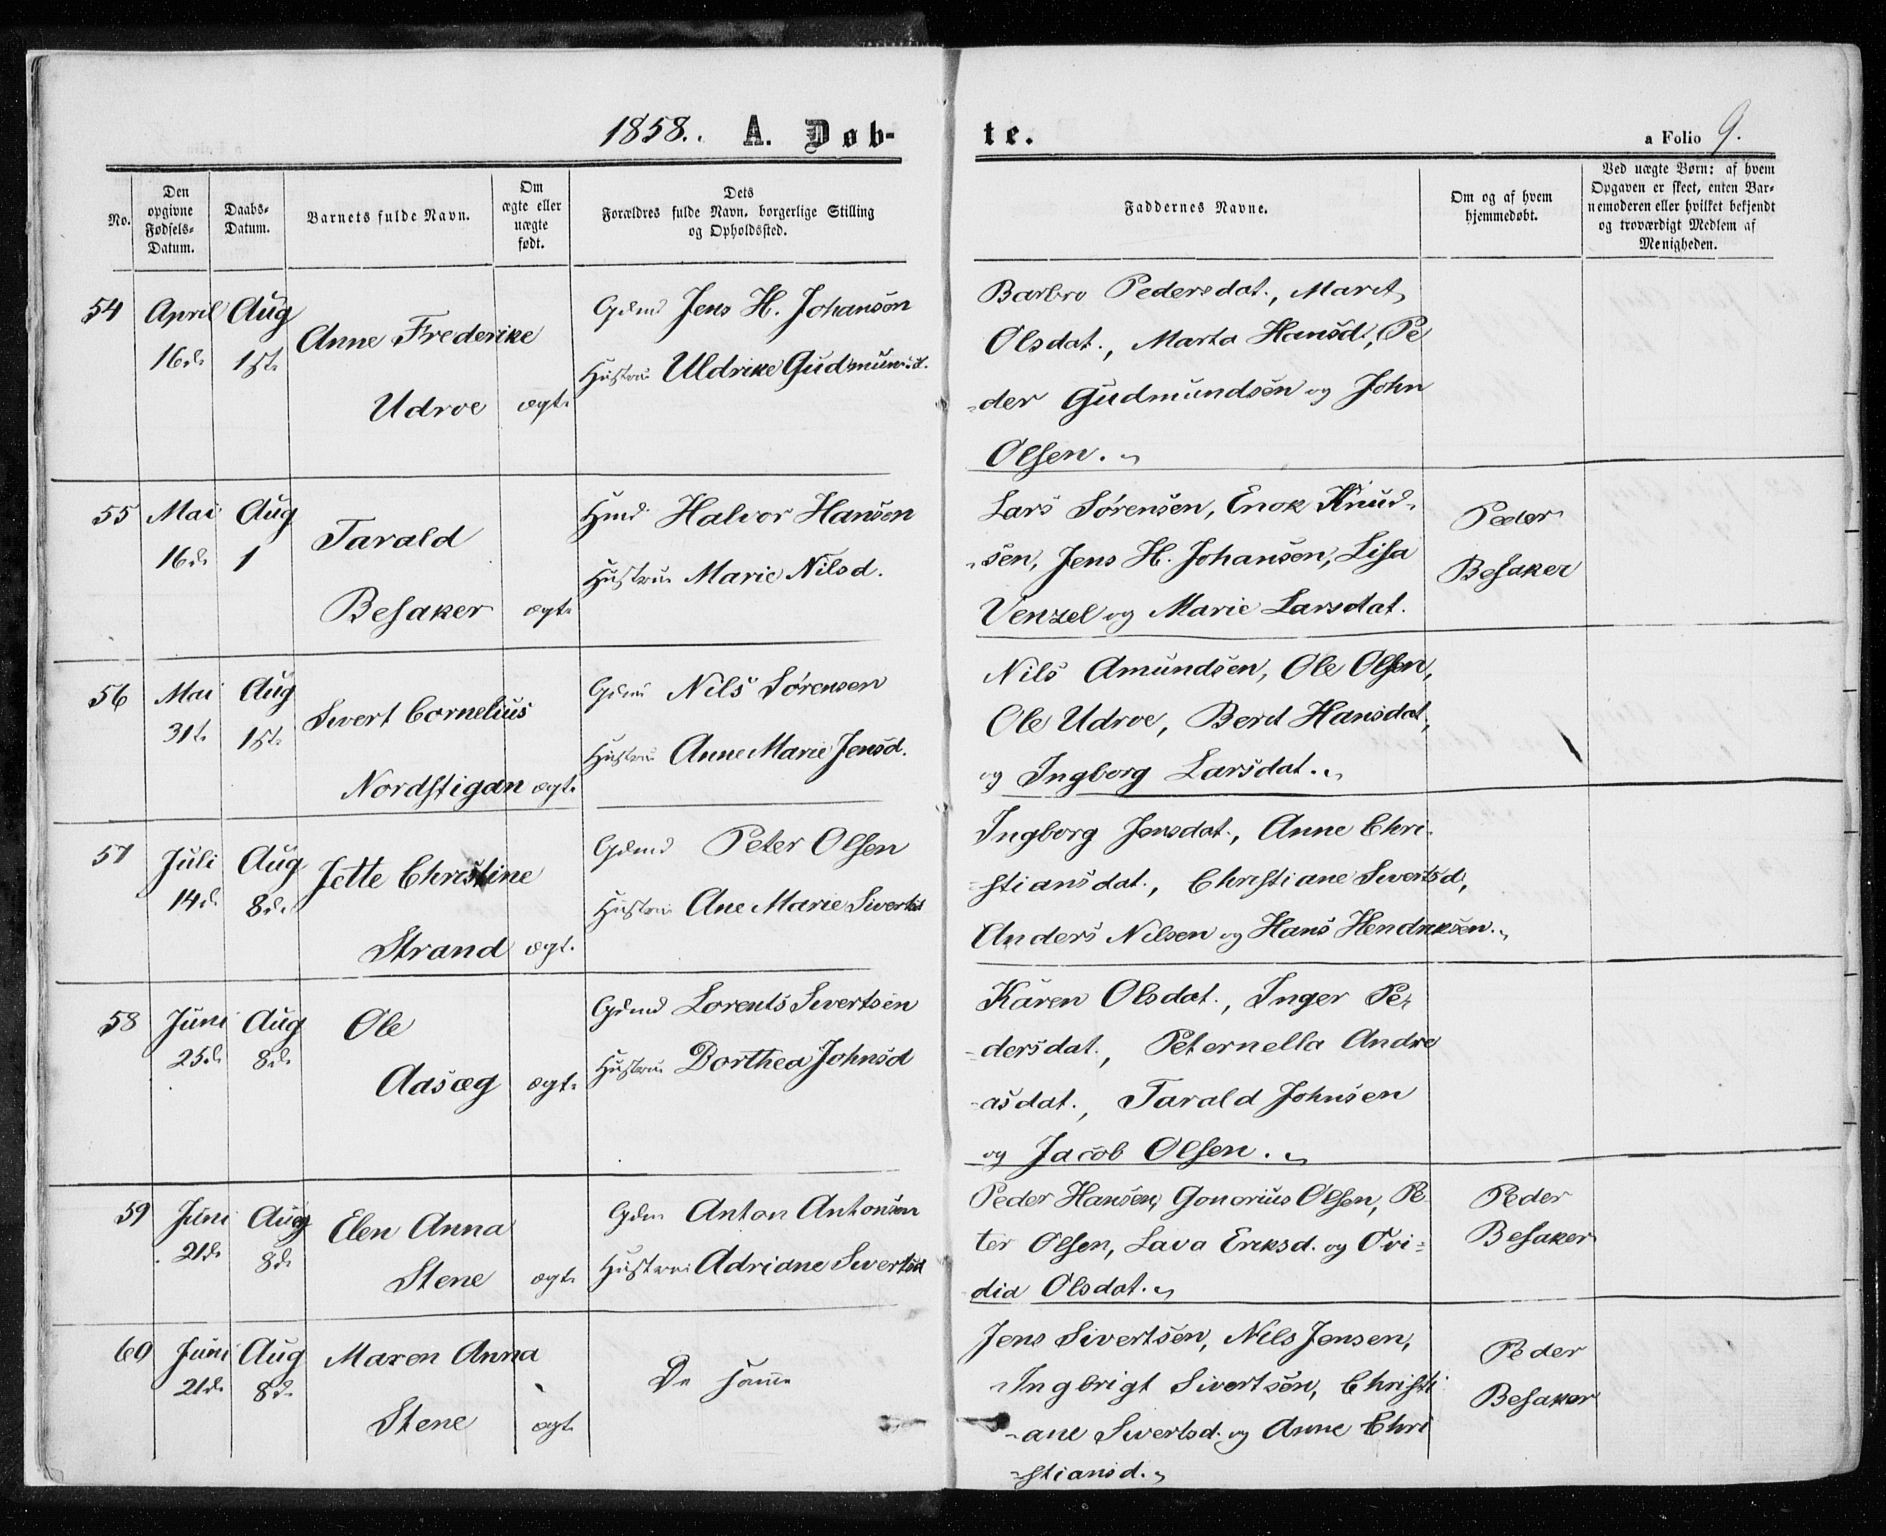 1858. A. Døb-
te.
a Folio 9.
No.
Den
opgivne
Fødsels-
Datum.
Daabs-
Datum.
Barnets fulde Navn.
Om
ægte eller
uægte
født.
Dets
Forældres fulde Navn, borgerlige Stilling
og Opholdssted.
Faddernes Navne.
Om og af hvem
hjemmedøbt.
Ved uægte Børn: af hvem
Opgaven er skeet, enten Bar-
nemoderen eller hvilket bekjendt
og troværdigt Medlem af
Menigheden.
54 April Aug
16d. 1ste
Anne Frederike
Udroe ægte
Gdmd Jens H. Johansen
Hustrue Uldrike Gudmunsd.
Barbro Pedersdat., Marit
Olsdat., Marta Hansd., Pe
-der Gudmundsen og John
Olsen.
55 Mai Aug
16d. 1
Tarald
Besaker ægte
Hmd. Halvor Hansen
Hustrue Marie Nilsd.
Lars Sørensen, Enok Knud-
-sen, Jens H. Johansen, Lisa
Venzel og Marie Larsdat.
Peder
Besaker
56 Mai Aug
31te 1ste
Sivert Cornelius
Nordstigan ægte
Gdmd Nils Sørensen
Hustrue Anne Marie Jensd.
Nils Amundsen, Ole Olsen,
Ole Udroe, Berit Hansdat.,
og Ingborg Larsdat.
57 Juli Aug
14d. 8d.
Jette Christine
Strand ægt.
Gdmd Peter Olsen
Hustrue Ane Marie Sivertsd
Ingborg Jensdat., Anne Chri-
-stiansdat., Christiane Sivertsd,
Anders Nilsen og Hans Hendriksen.
58 Juni Aug
25d. 8d.
Ole
Aasæg ægte
Gdmd Lorents Sivertsen
Hustrue Dorthea Johnsd
Karen Olsdat., Inger Pe-
-dersdat., Peternella Andre
-asdat., Tarald Johnsen
og Jacob Olsen.
59 Juni Aug
21d. 8d.
Elen Anna
Stene ægte
Gdm Anton Antonsen
Hustrue Adriane Sivertsd
Peder Hansen, Gonorius Olsen, Pe
ter Olsen, Lava Eriksd. og Ovi-
dia Olsdat.
Peder
Besaker
60 Juni Aug
21d. 8d.
Maren Anna
Stene ægt
De samme
Jens Sivertsen, Nils Jensen,
Ingbrigt Sivertsen, Christi
-ane Sivertsd. og Anne Chri
-stiansd.
Peder
Besaker